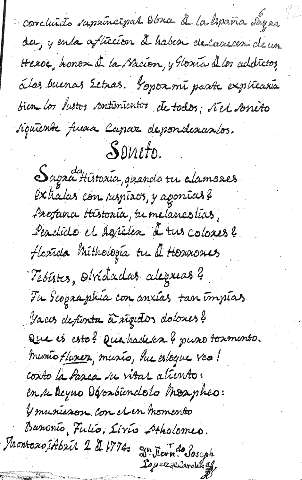 concluido su principal Obra de la España Sagra
da, y en la afliccion de haber de carecer de un
Heroe, honor de la Nacion, y Gloria de los addictos
á las buenas Letras. Yo por mi parte explicaria
bien los justos sentimientos de todos; si el Soneto
siguiente fuera capaz de ponderarlos.
Soneto.
Sagrada Historia, quando tu clamores
Exhalas con suspiros, y agonias?
Profana Historia, tu melancolias,
Perdido el de tus colores?
Florida Mithologia tu de Horrores
Te vistes, olvidadas alegrias?
Tu Geographia con ansias tan impias
Yaces defunta á rigidos dolores?
Que es esto? Que ha de ser? puro tormento.
Murió Florez, murió, fue es lo que veo!
cortó la Parca su vital aliento:
en su Reyno Morpheo:
Y murieron con el en un momento
Baronio, Tulio, Livio, Ptholomeo.
Montoro, y Abril 2 de 1774.
Dn. Fern.do Joseph
Lopez de Cardenas